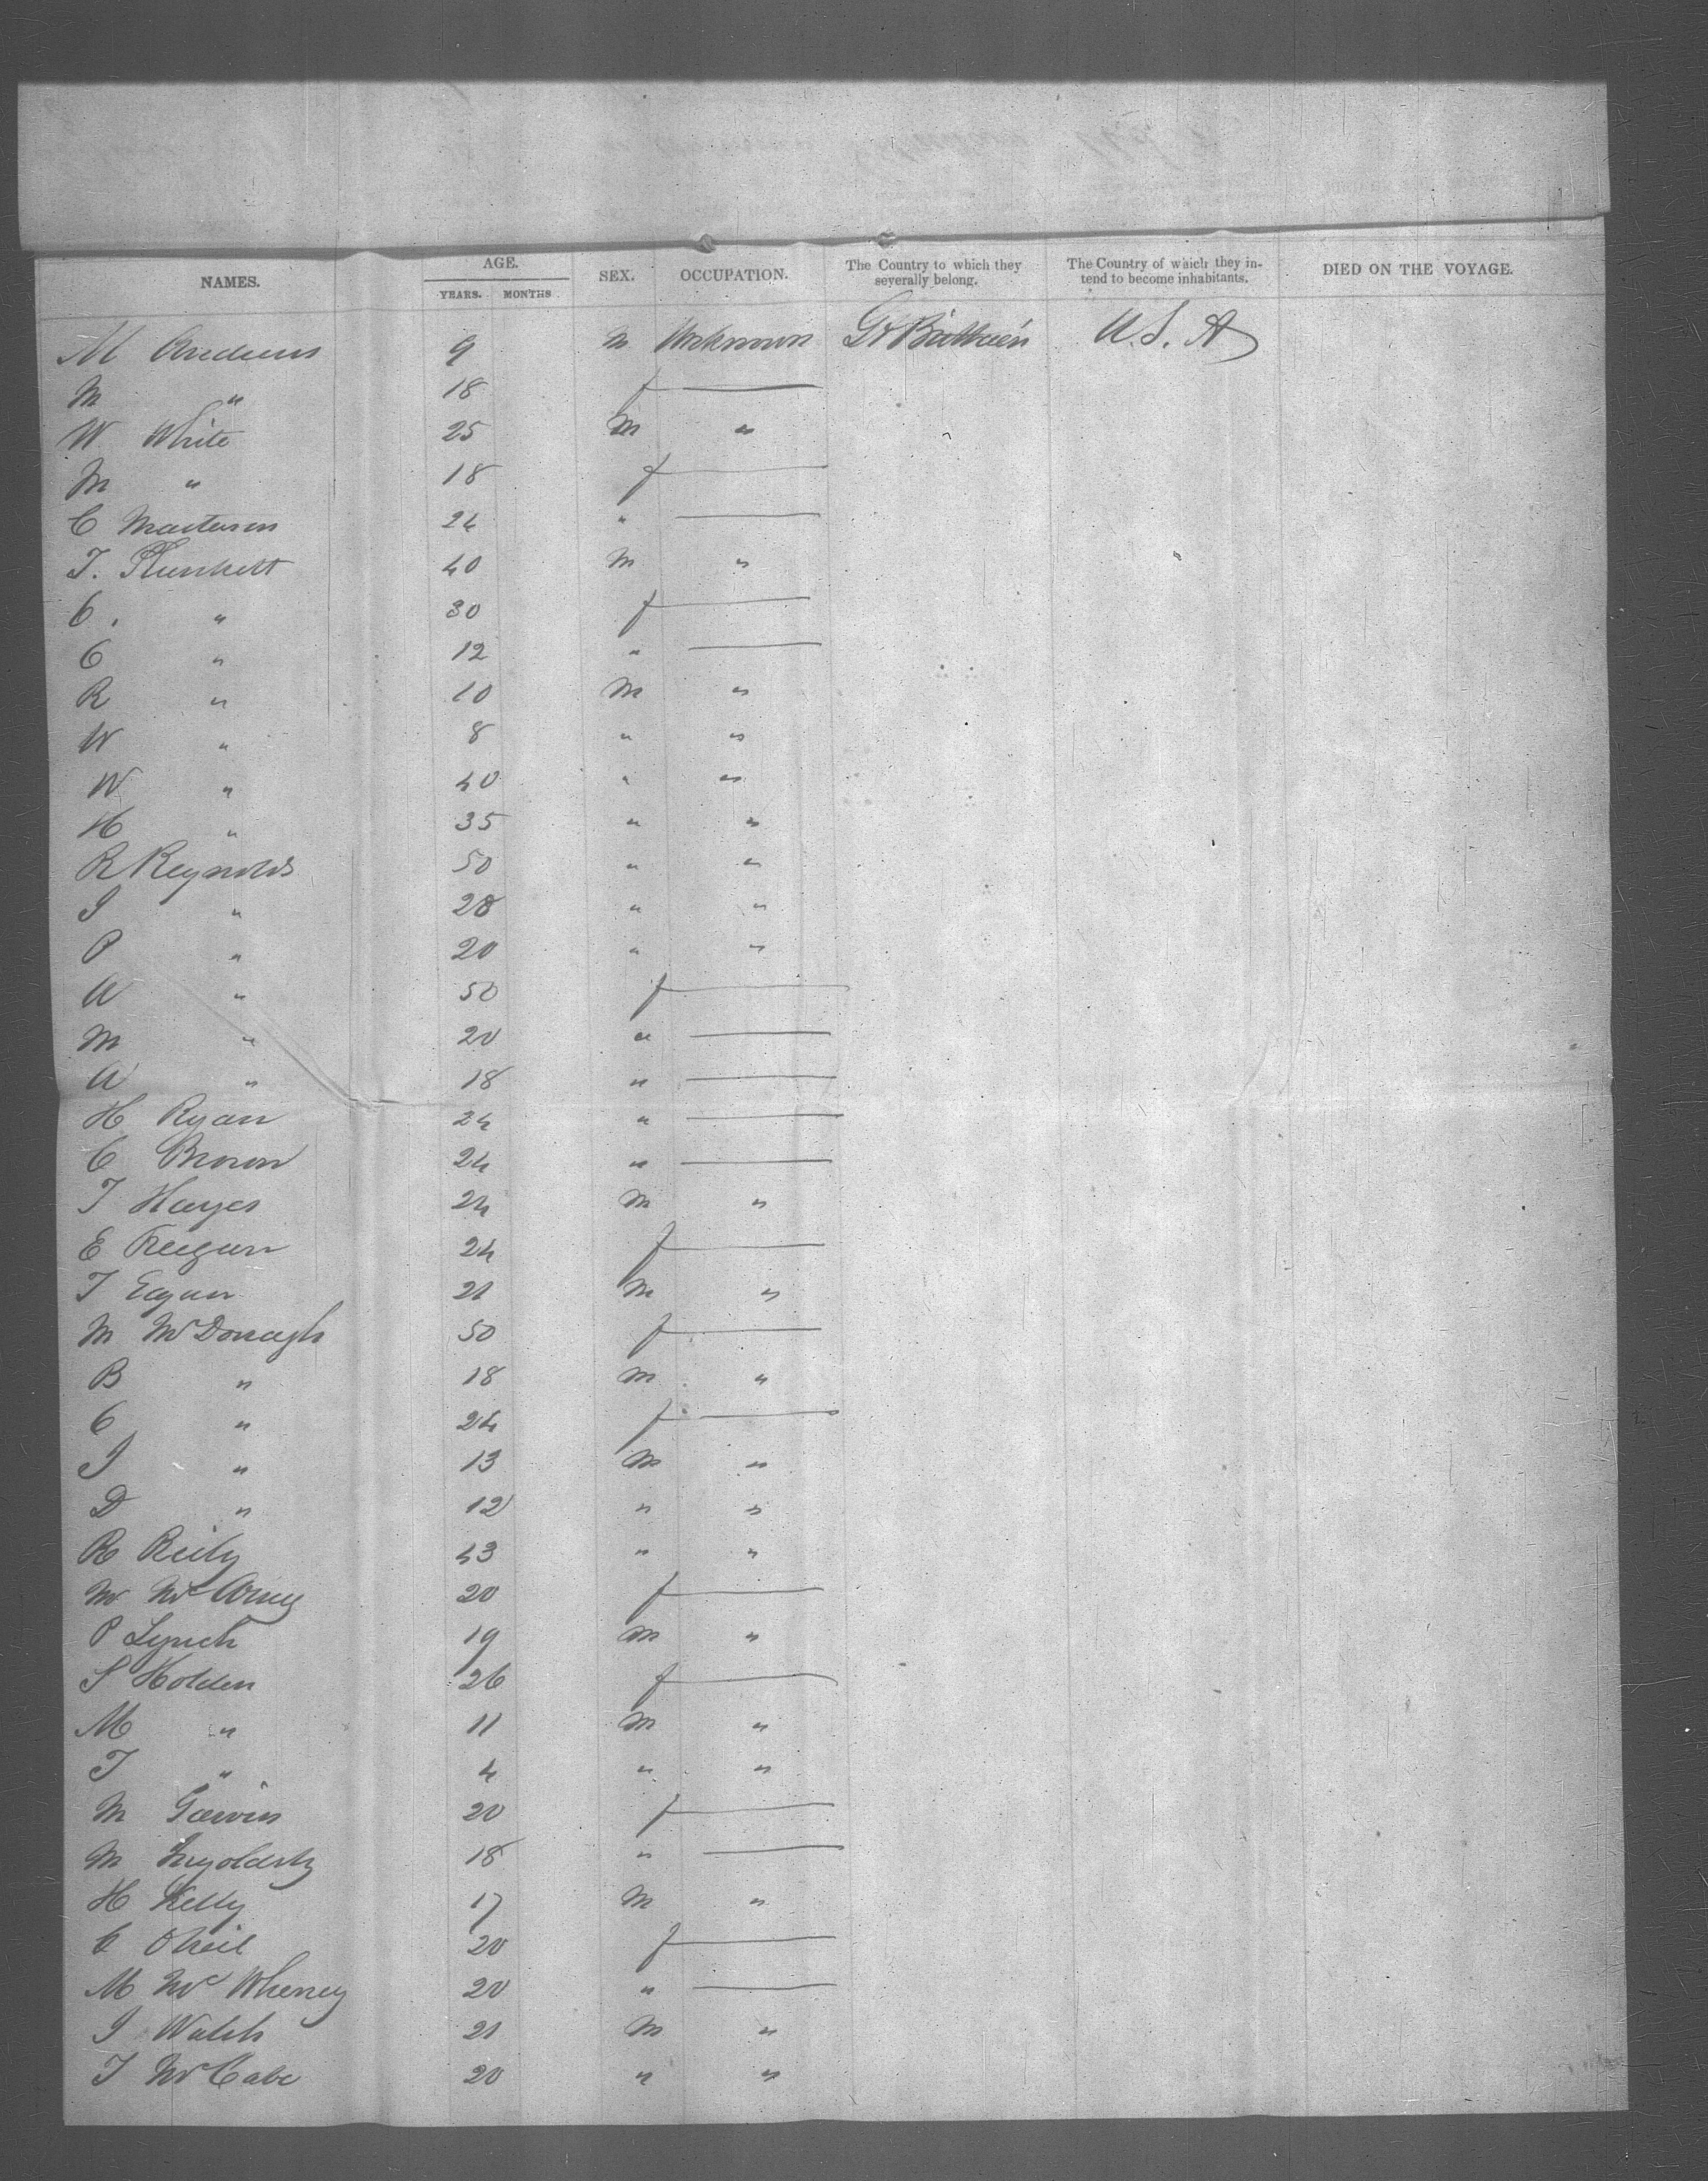 NAMES. AGE. SEX. OCCUPATION. The Country to which they severally belong. The Country of which they intend to become inhabitants. DIED ON THE VOYAGE.
YEARS. MONTHS
M Andrews 9 m Unknown Gt Brittain U. S. A
M " 18 f —
W White 25 M "
M " 18 f —
C Masterson 24 " —
T. Plunkett 40 M "
C. " 30 f —
C " 12 " —
R " 10 M "
W " 8 " "
W " 40 " "
H " 35 " "
R Reynolds 50 " "
J " 28 " "
P " 20 " "
A " 50 f —
M " 20 " —
A " 18 " —
H Ryan 24 " —
C Brown 24 " —
T Hayes 24 M "
E Keegan 24 f —
T Eagan 21 M "
M McDonagh 50 f —
B " 18 M "
C " 24 f —
J " 13 M "
D " 12 " "
R Reily 43 " "
M Mc 20 f —
P Lynch 19 M "
S Holden 26 f —
M " 11 M "
T " 4 " "
M Garvin 20 f —
M 18 " —
H Kelly 17 M "
C ONeil 20 f —
M Mc Wheney 20 " —
J Walsh 21 M "
T McCabe 20 " "